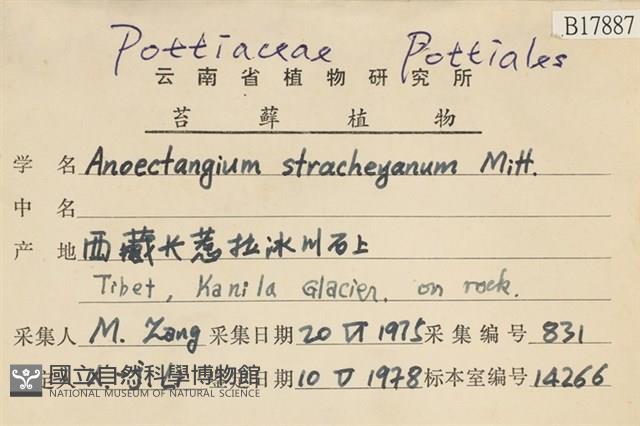 B17887
Pottiaceae Pottiales
云南省植物研究所
苔藓植物
学名 Anoectangium stracheyanum Mitt.
中名
产地 西藏长惹拉冰川石上
Tibet, Kanila Glacier, on rock.
采集人 M. Zang 采集日期 20 VI 1975 采集编号 831
定人 鉴定日期 10 V 1978 标本室编号 14266
國立自然科學博物館
NATIONAL MUSEUM OF NATURAL SCIENCE